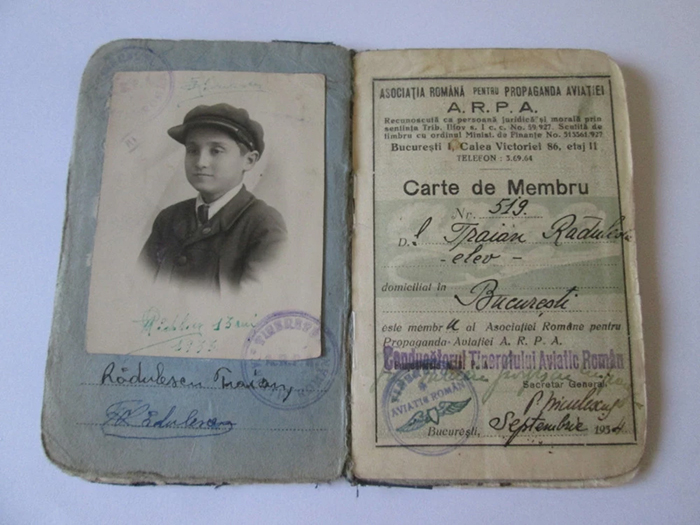 13 ani
Rădulescu Traian
ASOCIAȚIA ROMÂNĂ PENTRU PROPAGANDA AVIAȚIEI
A. R. P. A.
Recunoscută ca persoană juridică și morală prin
sentința Trib. Ilfov s. I c. c. No. 59.927. Scutită de
timbru cu ordinul Minist. de Finanțe No. 313561.927
București I, Calea Victoriei 86, etaj II
TELEFON: 3.69.64
Carte de Membru
Nr. 519.
D. l Traian Rădulescu
- elev -
domiciliat în
București
este membru al Asociației Române pentru
Propaganda Aviației A. R. P. A.
Conducătorul Tineretului Aviatic Român
Secretar General
AVIATIC ROMÂN
București, Septembrie 1934